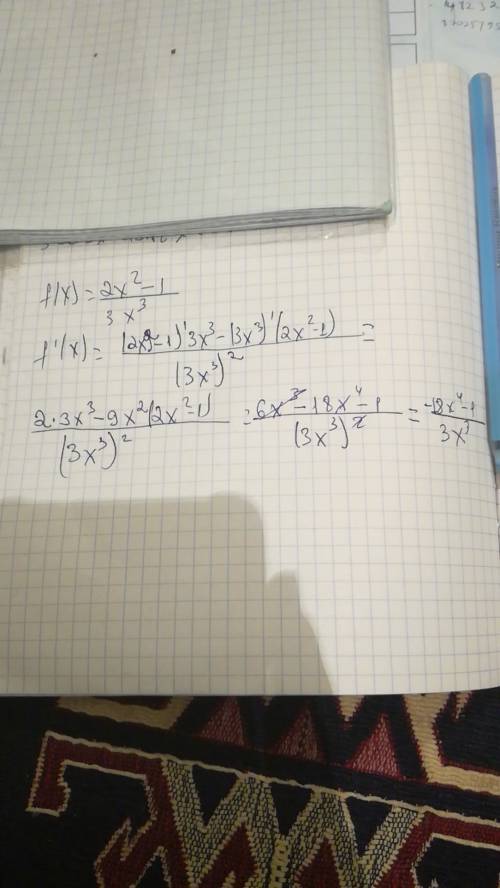 f(x) = (2x² - 1) / (3x³)
f'(x) = ((2x² - 1)' 3x³ - (3x³)' (2x² - 1)) / (3x³)² =
(2 · 3x³ - 9x² (2x² - 1)) / (3x³)² = (6x³ - 18x⁴ - 1) / (3x³)² = (-18x⁴ - 1) / (3x³)